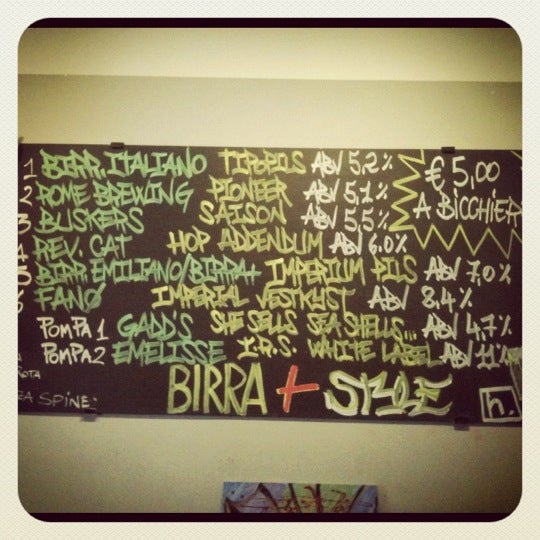 1 BIRR. ITALIANO TIPOPILS ABV 5,2%
€ 5,00
2 ROME BREWING PIONEER ABV 5,1%
A BICCHIER
3 BUSKERS SAISON ABV 5.5%
4 REV. CAT HOP ADDENDUM ABV 6.0%
5 BIRR. EMILIANO/BIRRA+ IMPERIUM PILS ABV 7,0%
FANØ IMPERIAL VESTKYST ABV 8,4%
POMPA 1 GADD'S SHE SELLS SEA SHELLS... ABV 4,7%
POMPA 2 EMELISSE I.R.S. WHITE LABEL ABV 11%
BIRRA + STYLE
SPINE:
h.